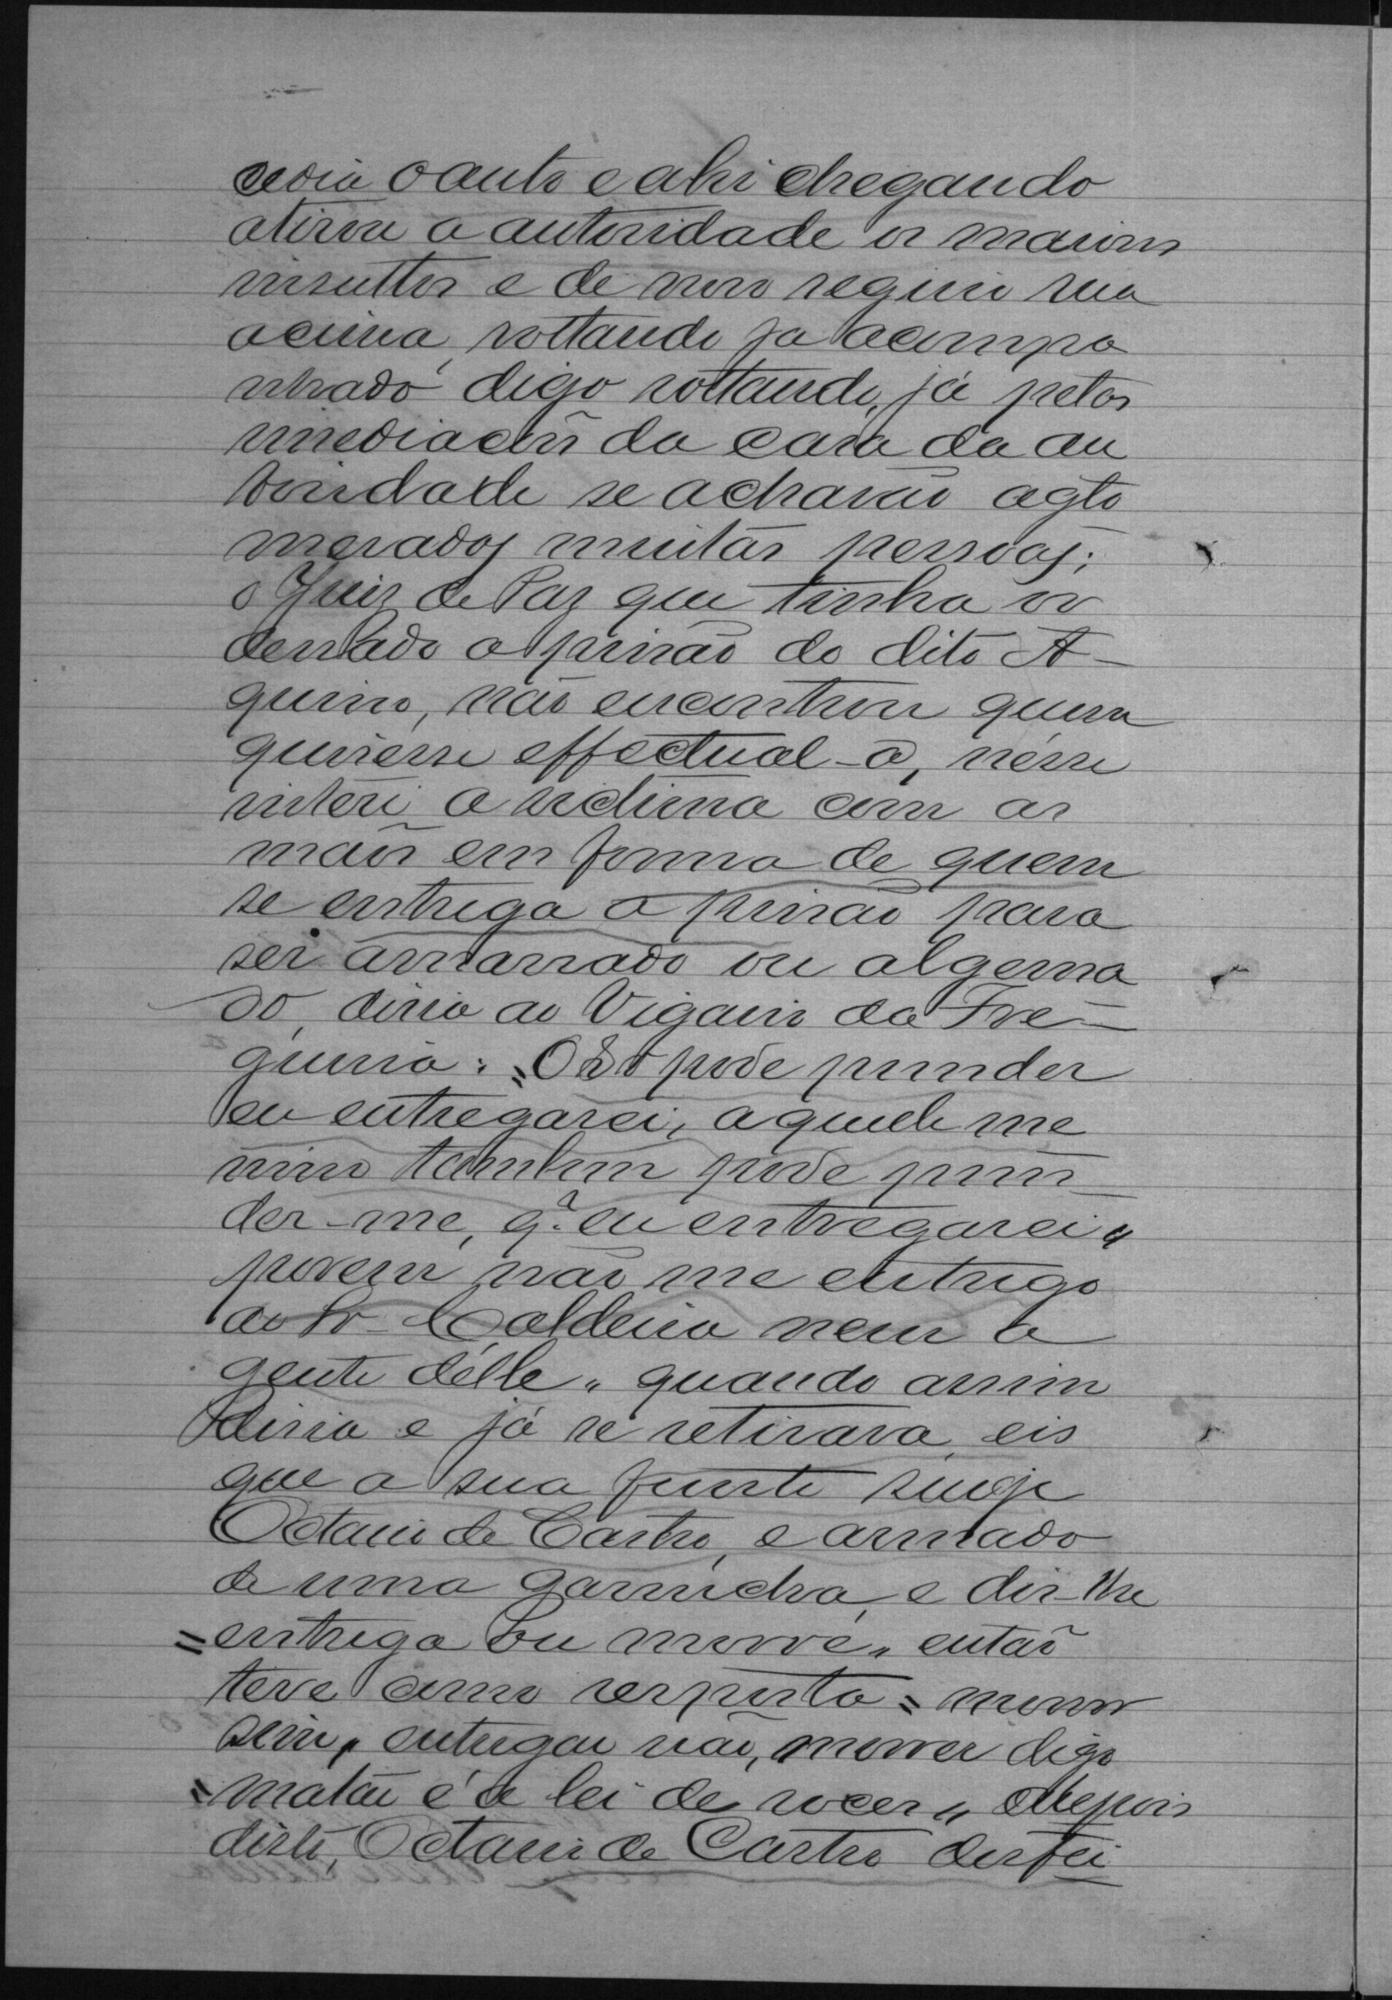 cedia o auto e ahi chegando
atirou a autoridade os maiores
insultos e de novo seguio rua
acima, voltando ja acompa
nhado digo voltando, já pelas
imediacões da casa da au
toridade se achavão aglo
merados muitas pessoas;
o Juiz de Paz que tinha or
denado a prisão do dito A-
quino, não encontrou quem
quisesse effectual-a, nesse
interi a victima com as
mãos em forma de quem
se entrega a prisão para
ser amarrado ou algema
do, disia ao Vigario da Fre-
guesia: "O Sr pode prender
eu entregarei, aquelle me
nino tambem pode pren
der-me, q.e eu entregarei"
porem não me entrego
ao Sr Caldeira nem a
gente délle" quando assim
disia e já se retirava, eis
que a sua frente surge
Octavio de Castro, e armado
de uma garrucha, e dis-lhe
=entrega ou morre" então
teve como resposta = morrer
sim, entregar não, morrer digo
=matar é a lei de voces" Depois
disto, Octavio de Castro desfei